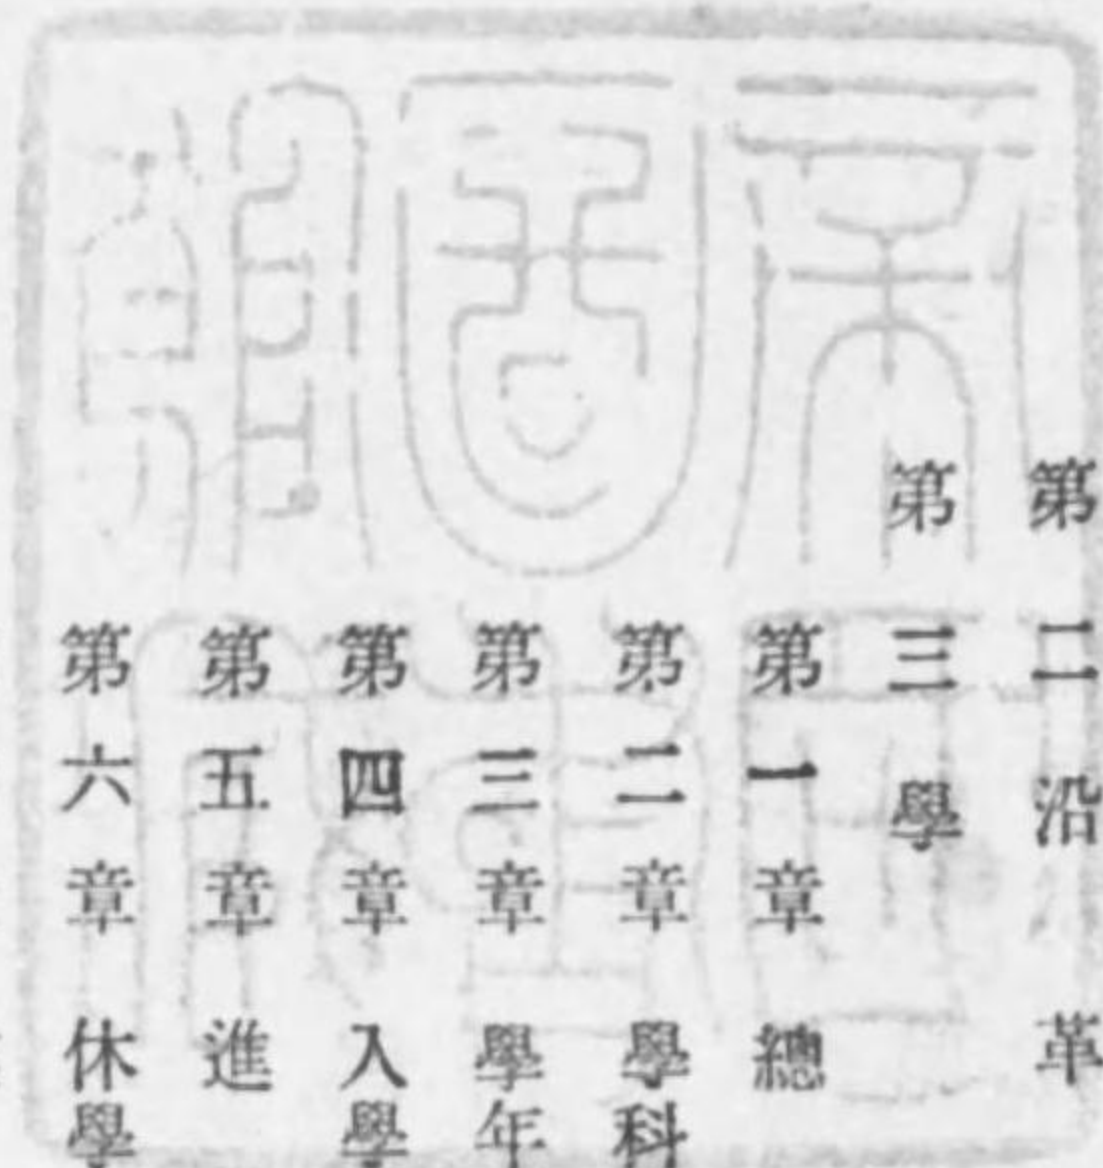 第二沿革
第三學
第一章 總
第二章 學科
第三章 學年
第四章 入學
第五章 進
第六章 休學
帝國圖